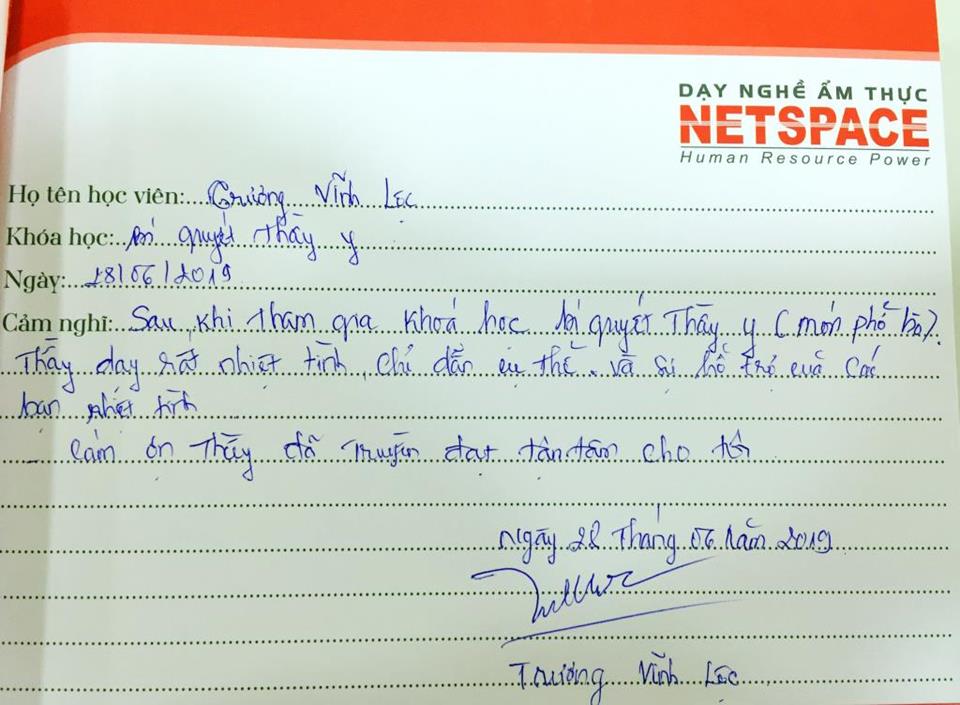 DẠY NGHỀ ẨM THỰC
NETSPACE
Human Resource Power
Họ tên học viên: Trương Vĩnh Lộc
Khóa học: Bí quyết Thầy Y
Ngày: 28/06/2019
Cảm nghĩ: Sau khi tham gia khoá học bí quyết Thầy y (món phở bò).
Thầy dạy rất nhiệt tình, chỉ dẫn cụ thể. và sự hỗ trợ của các
bạn nhiệt tình
- Cảm ơn Thầy đã truyền đạt tận tâm cho tôi
Ngày 28 Tháng 06 năm 2019
Trương Vĩnh Lộc